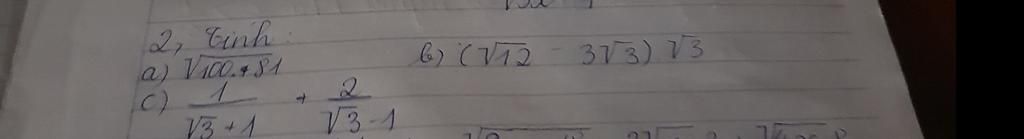 2, Tính:
a) √100.81 b) (√12 - 3√3) √3
c) 1/(√3 + 1) + 2/(√3 - 1)